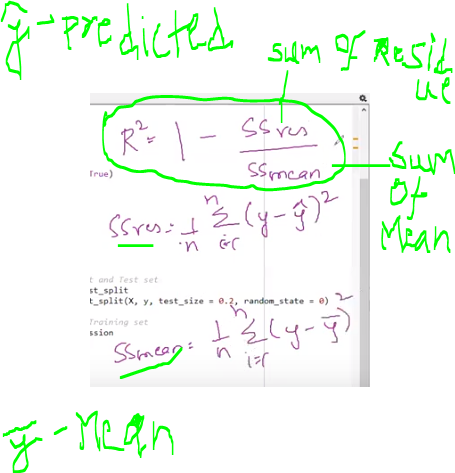 ŷ - predicted
sum of Resid
ue
R² = 1 - SSres / SSmean
True)
sum
Of
Mean
SSres = 1/n Σ i=1 n (y - ŷ)²
t and Test set
st_split
t_split(X, y, test_size = 0.2, random_state = 0)
Training set
ssion
SSmean = 1/n Σ i=1 n (y - ȳ)²
ȳ - Mean